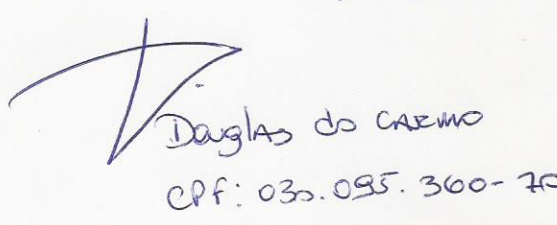 Douglas do CARMO
CPF: 030.095.360-70